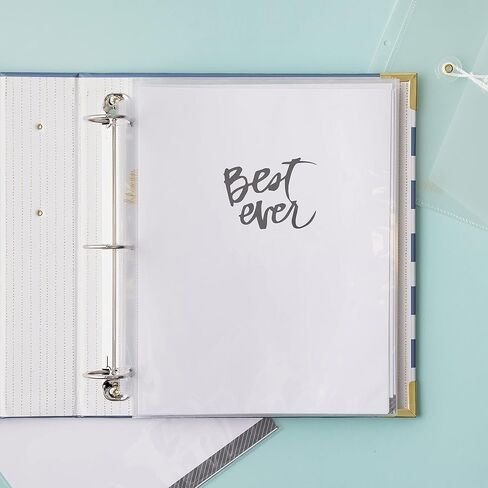 Best
ever